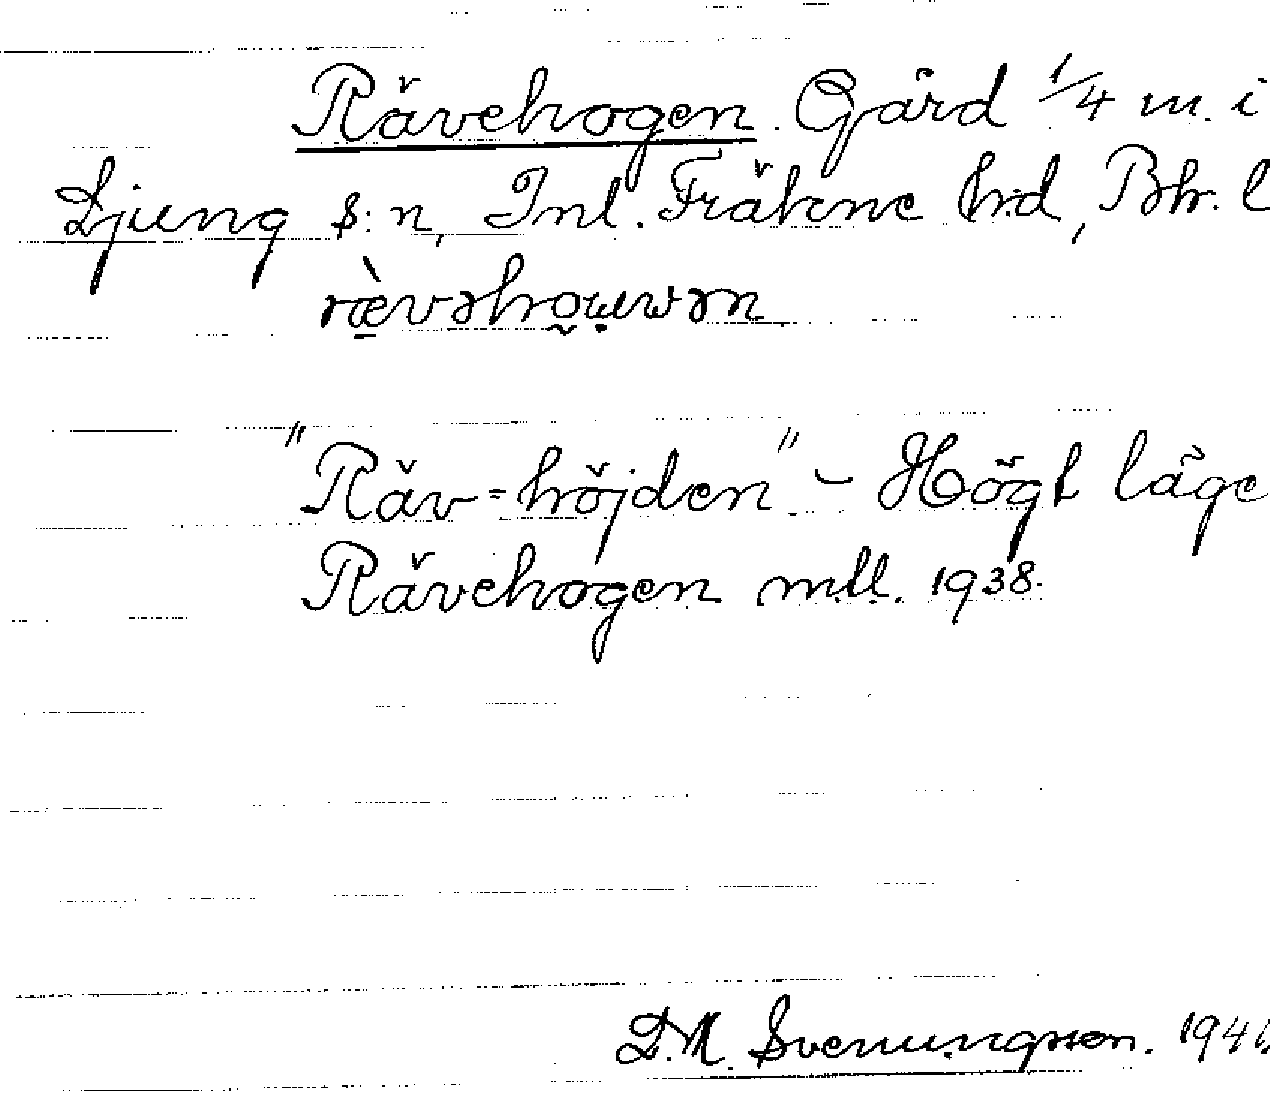 Rävehogen. Gård 1/4 m. i
Ljung s:n, Inl. Fräkne hrd, Bh. l
"Räv-höjden" - Högt läge
Rävehogen mtl. 1938.
D.M. Svenungsson. 1941.